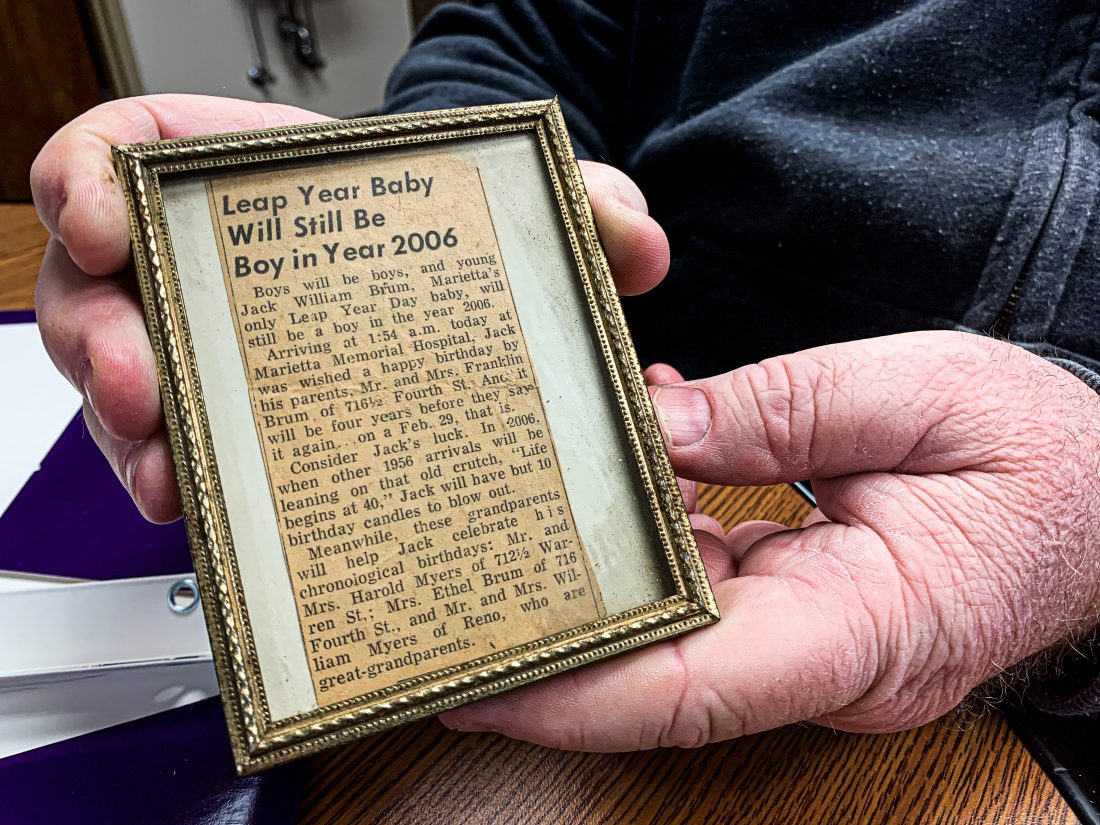 Leap Year Baby
Will Still Be
Boy in Year 2006
Boys will be boys, and young
Jack William Brum, Marietta's
only Leap Year Day baby, will
still be a boy in the year 2006.
Arriving at 1:54 a.m. today at
Marietta Memorial Hospital, Jack
was wished a happy birthday by
his parents, Mr. and Mrs. Franklin
Brum of 716½ Fourth St. And it
will be four years before they say
it again. . .on a Feb. 29, that is.
Consider Jack's luck. In 2006,
when other 1956 arrivals will be
leaning on that old crutch, "Life
begins at 40," Jack will have but 10
birthday candles to blow out.
Meanwhile, these grandparents
will help Jack celebrate his
chronological birthdays: Mr. and
Mrs. Harold Myers of 712½ War-
ren St.; Mrs. Ethel Brum of 716
Fourth St., and Mr. and Mrs. Wil-
liam Myers of Reno, who are
great-grandparents.